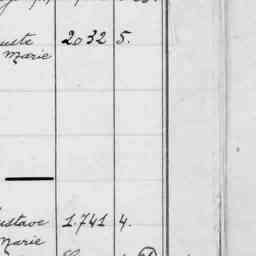 uste 2032 5.
Marie
ustave 1.741 4.
Marie